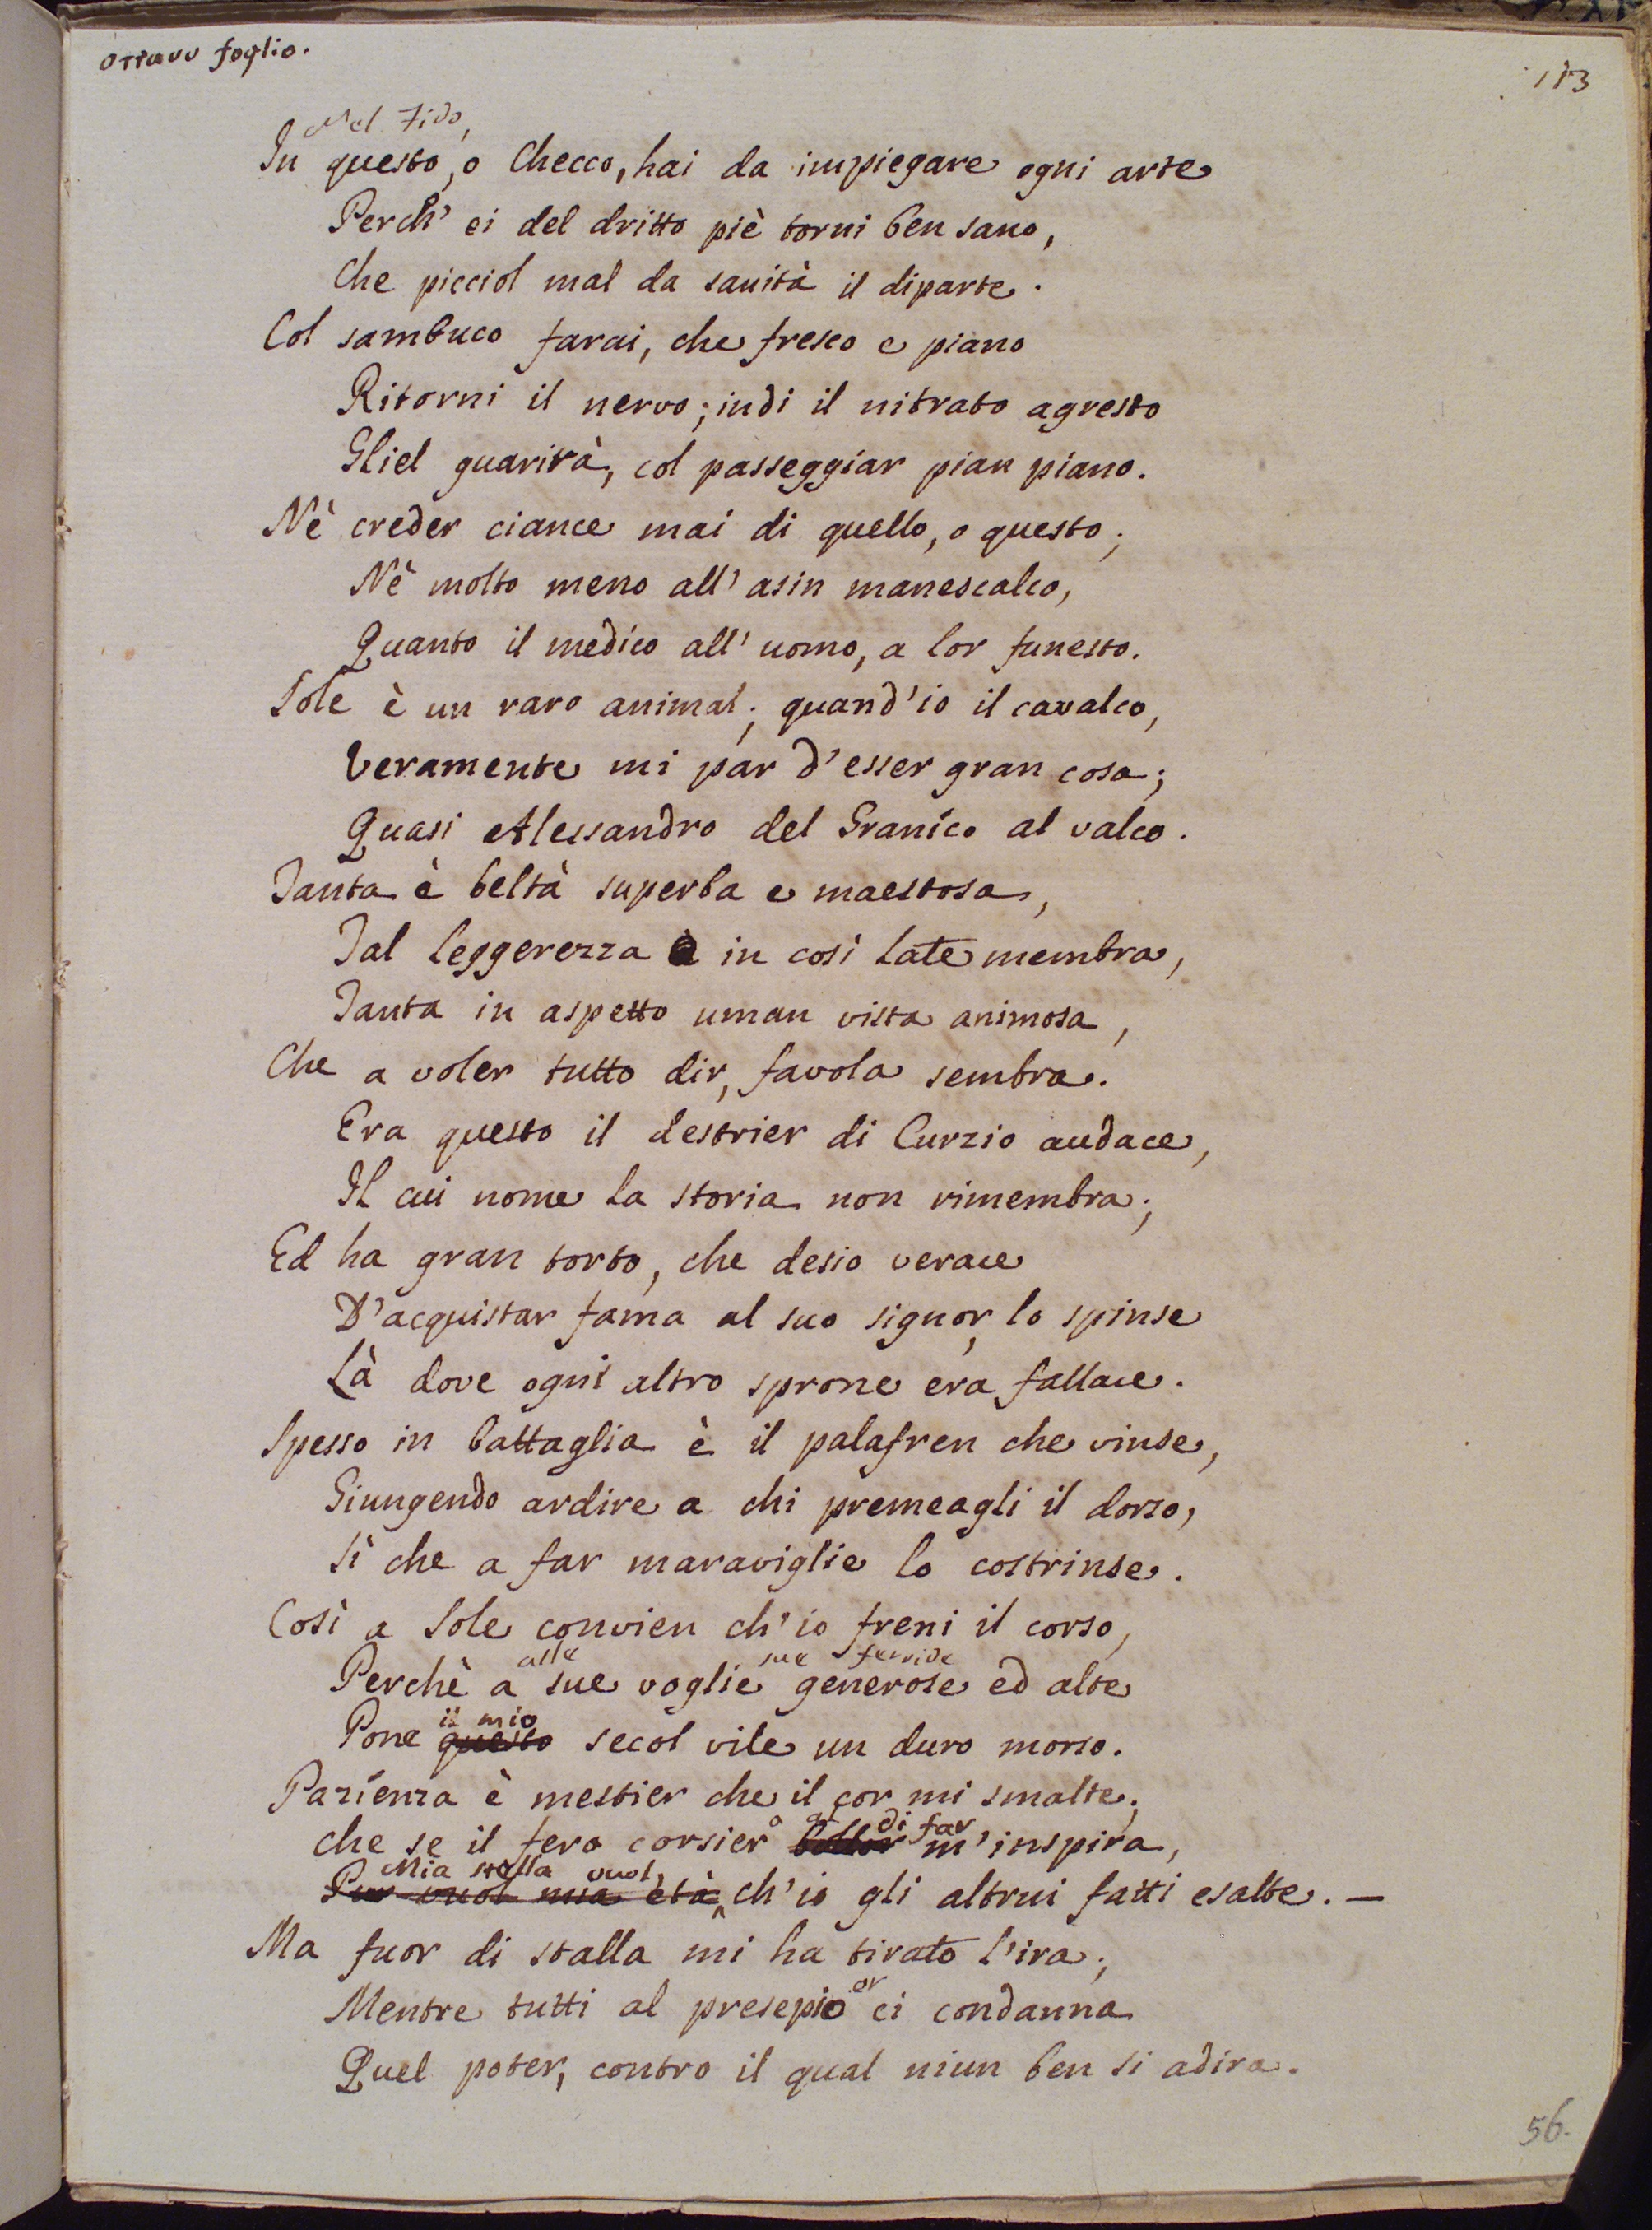 ottavo foglio.
113
Nel Fido,
In questo, o Checco, hai da impiegare ogni arte
Perch' ei del dritto piè torni ben sano,
Che picciol mal da sanità il diparte.
Col sambuco farai, che fresco e piano
Ritorni il nervo; indi il nitrato agresto
Gliel guarirà, col passeggiar pian piano.
Nè creder ciance mai di quello, o questo;
Nè molto meno all' asin manescalco,
Quanto il medico all' uomo, a lor funesto.
Sole è un raro animal; quand' io il cavalco,
Veramente mi par d'esser gran cosa;
Quasi Alessandro del Granico al valco.
Tanta è beltà superba e maestosa,
Tal leggerezza è in così late membra,
Tanta in aspetto uman vista animosa,
Che a voler tutto dir, favola sembra.
Era questo il destrier di Curzio audace,
Il cui nome la storia non rimembra;
Ed ha gran torto, che desio verace
D'acquistar fama al suo signor, lo spinse
Là dove ogni altro sprone era fallace.
Spesso in battaglia è il palafren che vinse,
Giungendo ardire a chi premeagli il dorso,
Sì che a far maraviglie lo costrinse.
Così a Sole convien ch'io freni il corso,
alle sue fervide
Perchè a sue voglie generose ed alte
il mio
Pone questo secol vile un duro morso.
Pazienza è mestier che il cor mi smalte;
di far
che se il fero corsier m'inspira,
Mia stella vuol,
Pur vuol mia età ch'io gli altrui fatti esalte. —
Ma fuor di stalla mi ha tirato l'ira;
or
Mentre tutti al presepio ci condanna
Quel poter, contro il qual niun ben si adira.
56.